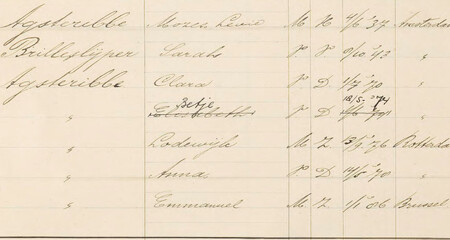 Agsteribbe Mozes Levie M H 4/6 '37 Amsterdam
Brilleslijper Sarah V V 9/10 '42 "
Agsteribbe Clara V D 1/7 '70 "
Betje 18/5 '74
" Elisabeth V D "
" Lodewijk M Z '76 Rotterdam
" Anna V D 14/5 '70 "
" Emmanuel M Z 1/1 '86 Brussel